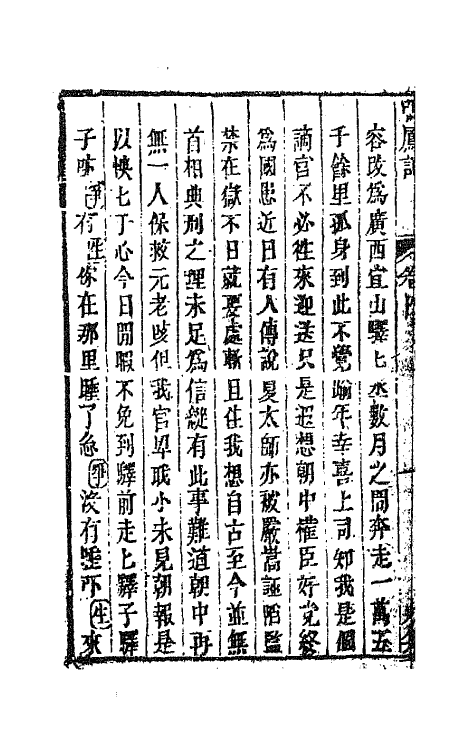 鳳記
卷
容改爲廣西宜山驛七丞數月之間奔走一萬五
千餘里孤身到此不覺踰年幸喜上司知我是個
謫官不必徃來迎送只是遥想朝中權臣奸党終
爲國患近日有人傳說夏太師亦被嚴嵩誣陷監
禁在獄不日就要處斬且住我想自古至今並無
首相典刑之理未足爲信縱有此事難道朝中再
無一人保救元老咳但我官卑職小未見朝報是
以怏七于心今日閒暇不免到驛前走七驛子驛
子 淨 有 生 你在那里睡了 淨 没有睡 生 來